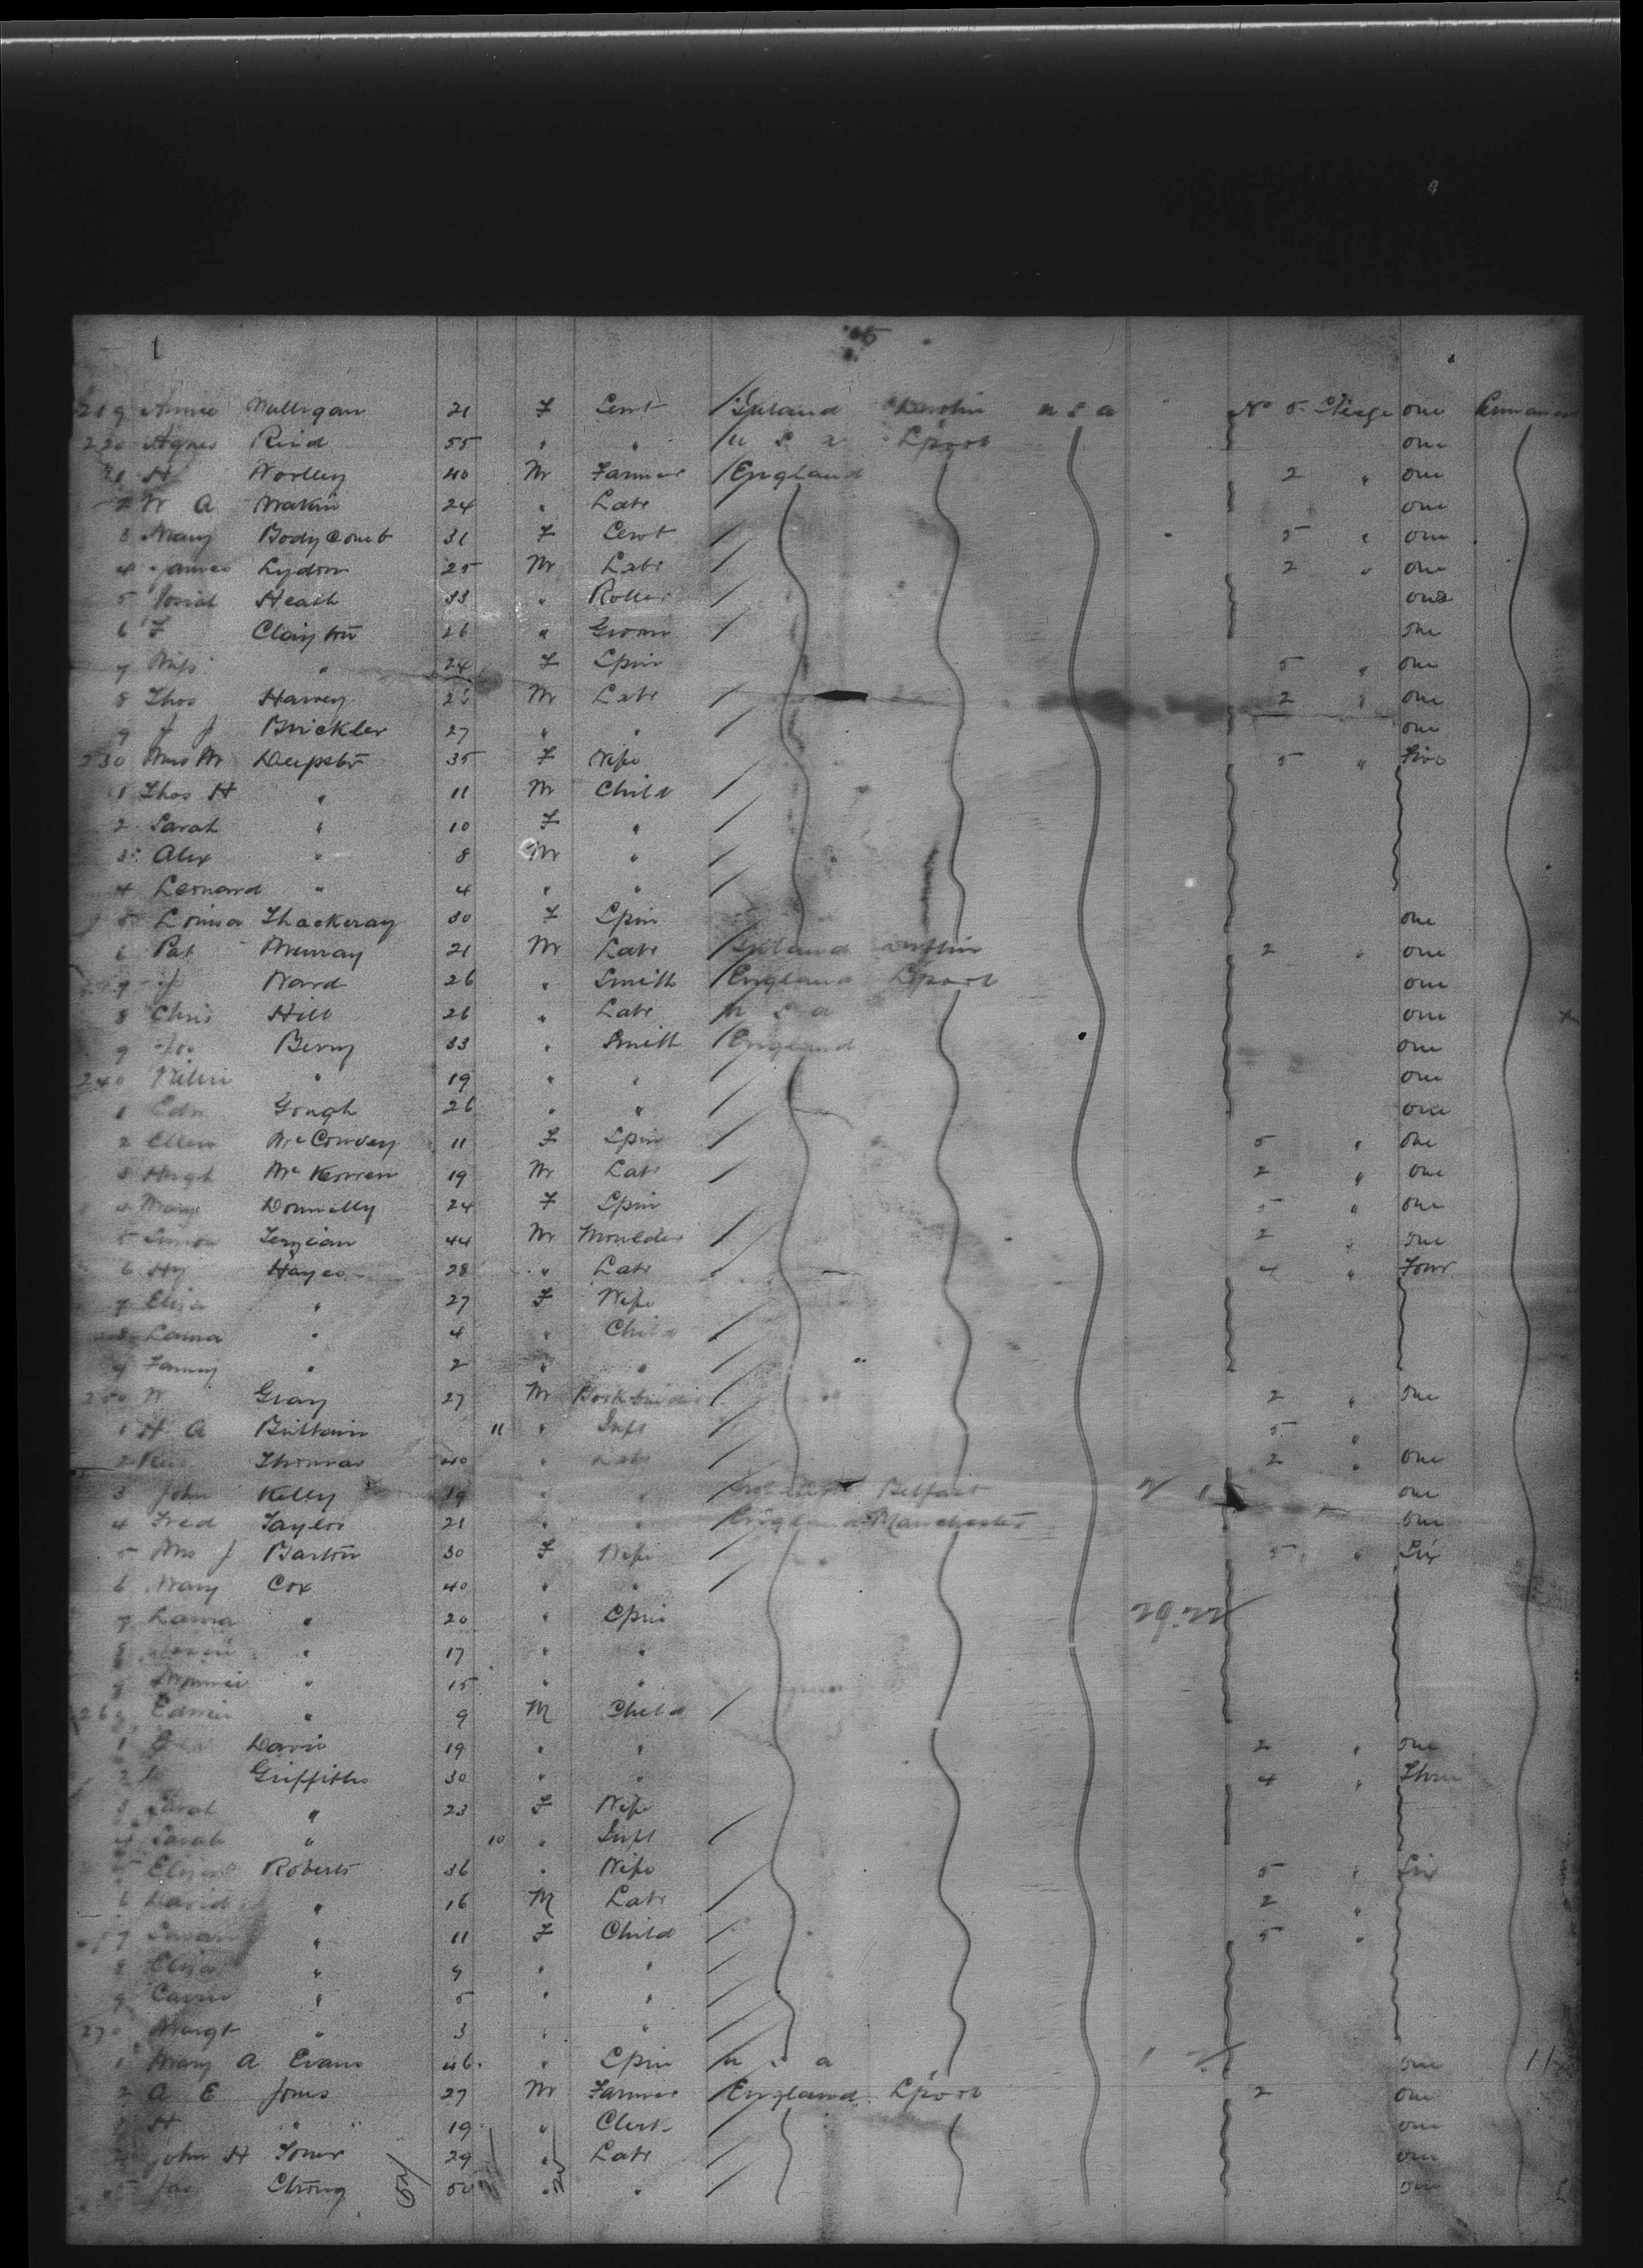 219 Annie Mulligan 21 F Servt Ireland Dublin U S A No 5 Steage one
220 Agnes Reid 55 " " U S A L'pool one
H Worlley 40 M Farmer England 2 " one
W A Makin 24 " Labr one
3 Mary Bodycomb 31 F Servt 5 " one
4 James Lydon 25 M Labr 2 " one
5 Josiah Heath 33 " Roller one
6 F Clayton 26 " Groom one
7 Miss " 24 F Spin 5 " one
8 Thos Harvey M Labr 2 " one
9 J J Brickler 27 " " one
230 Mrs M 35 F Wife 5 " Five
1 Thos H " 11 M Child
2 Sarah " 10 F "
3 Alex " 8 M "
4 Leonard " 4 " "
5 Louisa Thackeray 30 F Spin one
6 Pat Murray 21 M Labr Ireland Dublin 2 " one
7 J Ward 26 " Smith England L'pool one
8 Chris Hill 26 " Labr U S A one
9 Jos Berry 33 " Smith England one
240 " 19 " " one
1 Edw Gough 26 " " one
2 Ellen McConvey 11 F Spin 5 " one
3 Hugh McKerren 19 M Labr 2 " one
4 Mary Donnelly 24 F Spin 5 " one
5 Simon Terzian 44 M Moulder 2 " one
6 Hy Hayes 28 " Labr 4 " Four
7 Eliza " 27 F Wife
8 Laura " 4 " Child
9 Fanny " 2 " "
250 W Gray 27 M Bookbinder 2 " one
1 H A Brittain 11 " Inft 5 "
2 Thomas 40 " Labr 2 " one
3 John Kelly 19 " " Belfast one
4 Fred Taylor 21 " " England Manchester one
5 Mrs J Barton 30 F Wife 5 " Six
6 Mary Cox 40 " "
7 Laura " 20 " Spin
8 " 17 " "
9 Minnie " 15 " "
260 Edwin " 9 M Child
1 Davis 19 " " 2 " one
2 Griffiths 30 " " 4 " Three
3 Sarah " 23 F Wife
4 Sarah " 10 " Inft
5 Roberts 36 " Wife 5 " Six
6 David " 16 M Labr 2 "
7 Susan " 11 F Child 5 "
8 Eliza " 7 " "
9 Carrie " 5 " "
270 Margt " 3 " "
1 Mary A Evans 46 " Spin U S A one
2 A E Jones 27 M Farmer England L'pool 2 one
3 H " 19 " Clerk one
4 John H Toner 29 " Labr one
5 Jas Strong 50 " " one